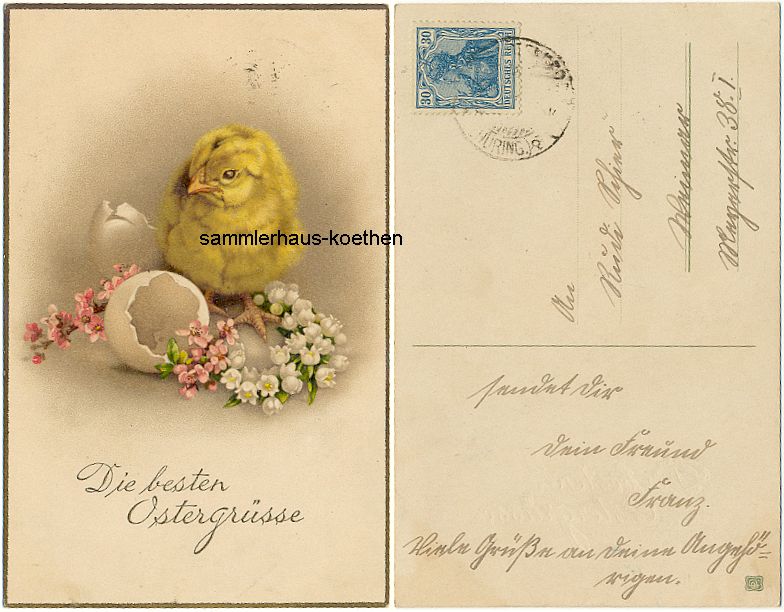 sammlerhaus-koethen
Die besten
Ostergrüsse
30 30
DEUTSCHES REICH
THÜRING.)
An
Rudi Schier
Weimar
Meyerstr. 38. I.
sendet dir
dein Freund
Franz.
Viele Grüße an deine Angehö-
rigen.